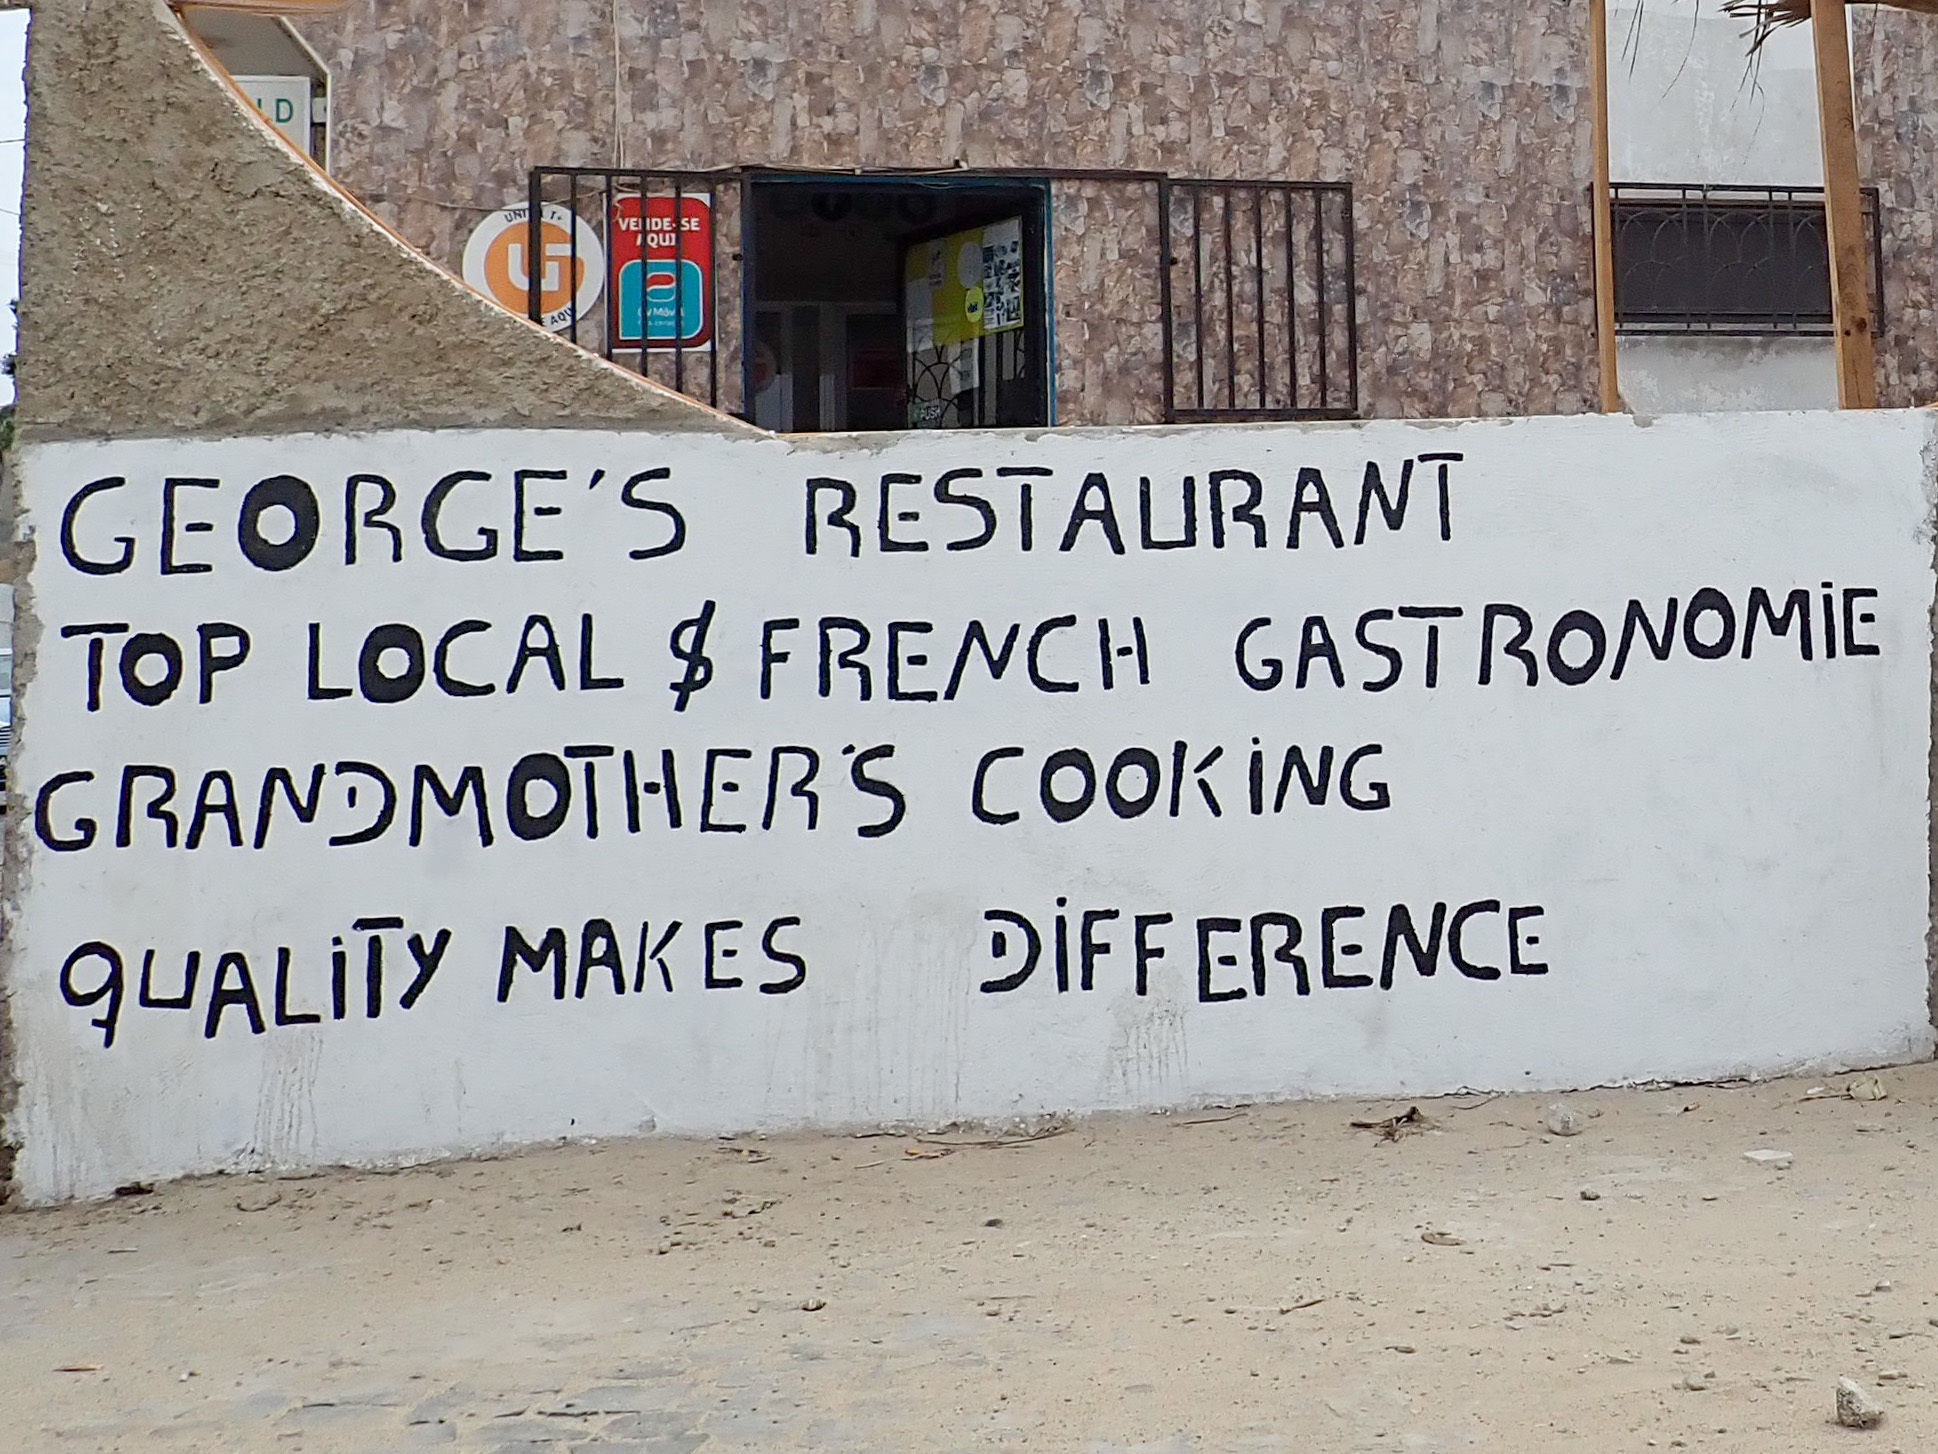 LD
UNITEL T+
VENDE-SE
AQUI
CV Móvel
PUSH
GEORGE'S RESTAURANT
TOP LOCAL $ FRENCH GASTRONOMiE
GRANDMOTHER'S COOKiNG
QUALiTY MAKES DiFFERENCE